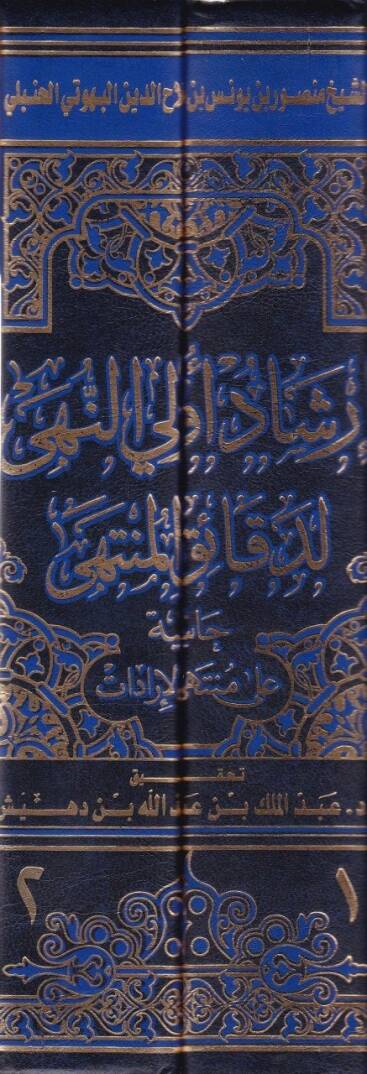 الشيخ منصور بن يونس بن صلاح الدين البهوتي الحنبلي
إرشاد أولي النُّهى
لدقائق المنتهى
حاشية
على منتهى الإرادات
تحقيق
د. عبد الملك بن عبد الله بن دهيش
١
٢